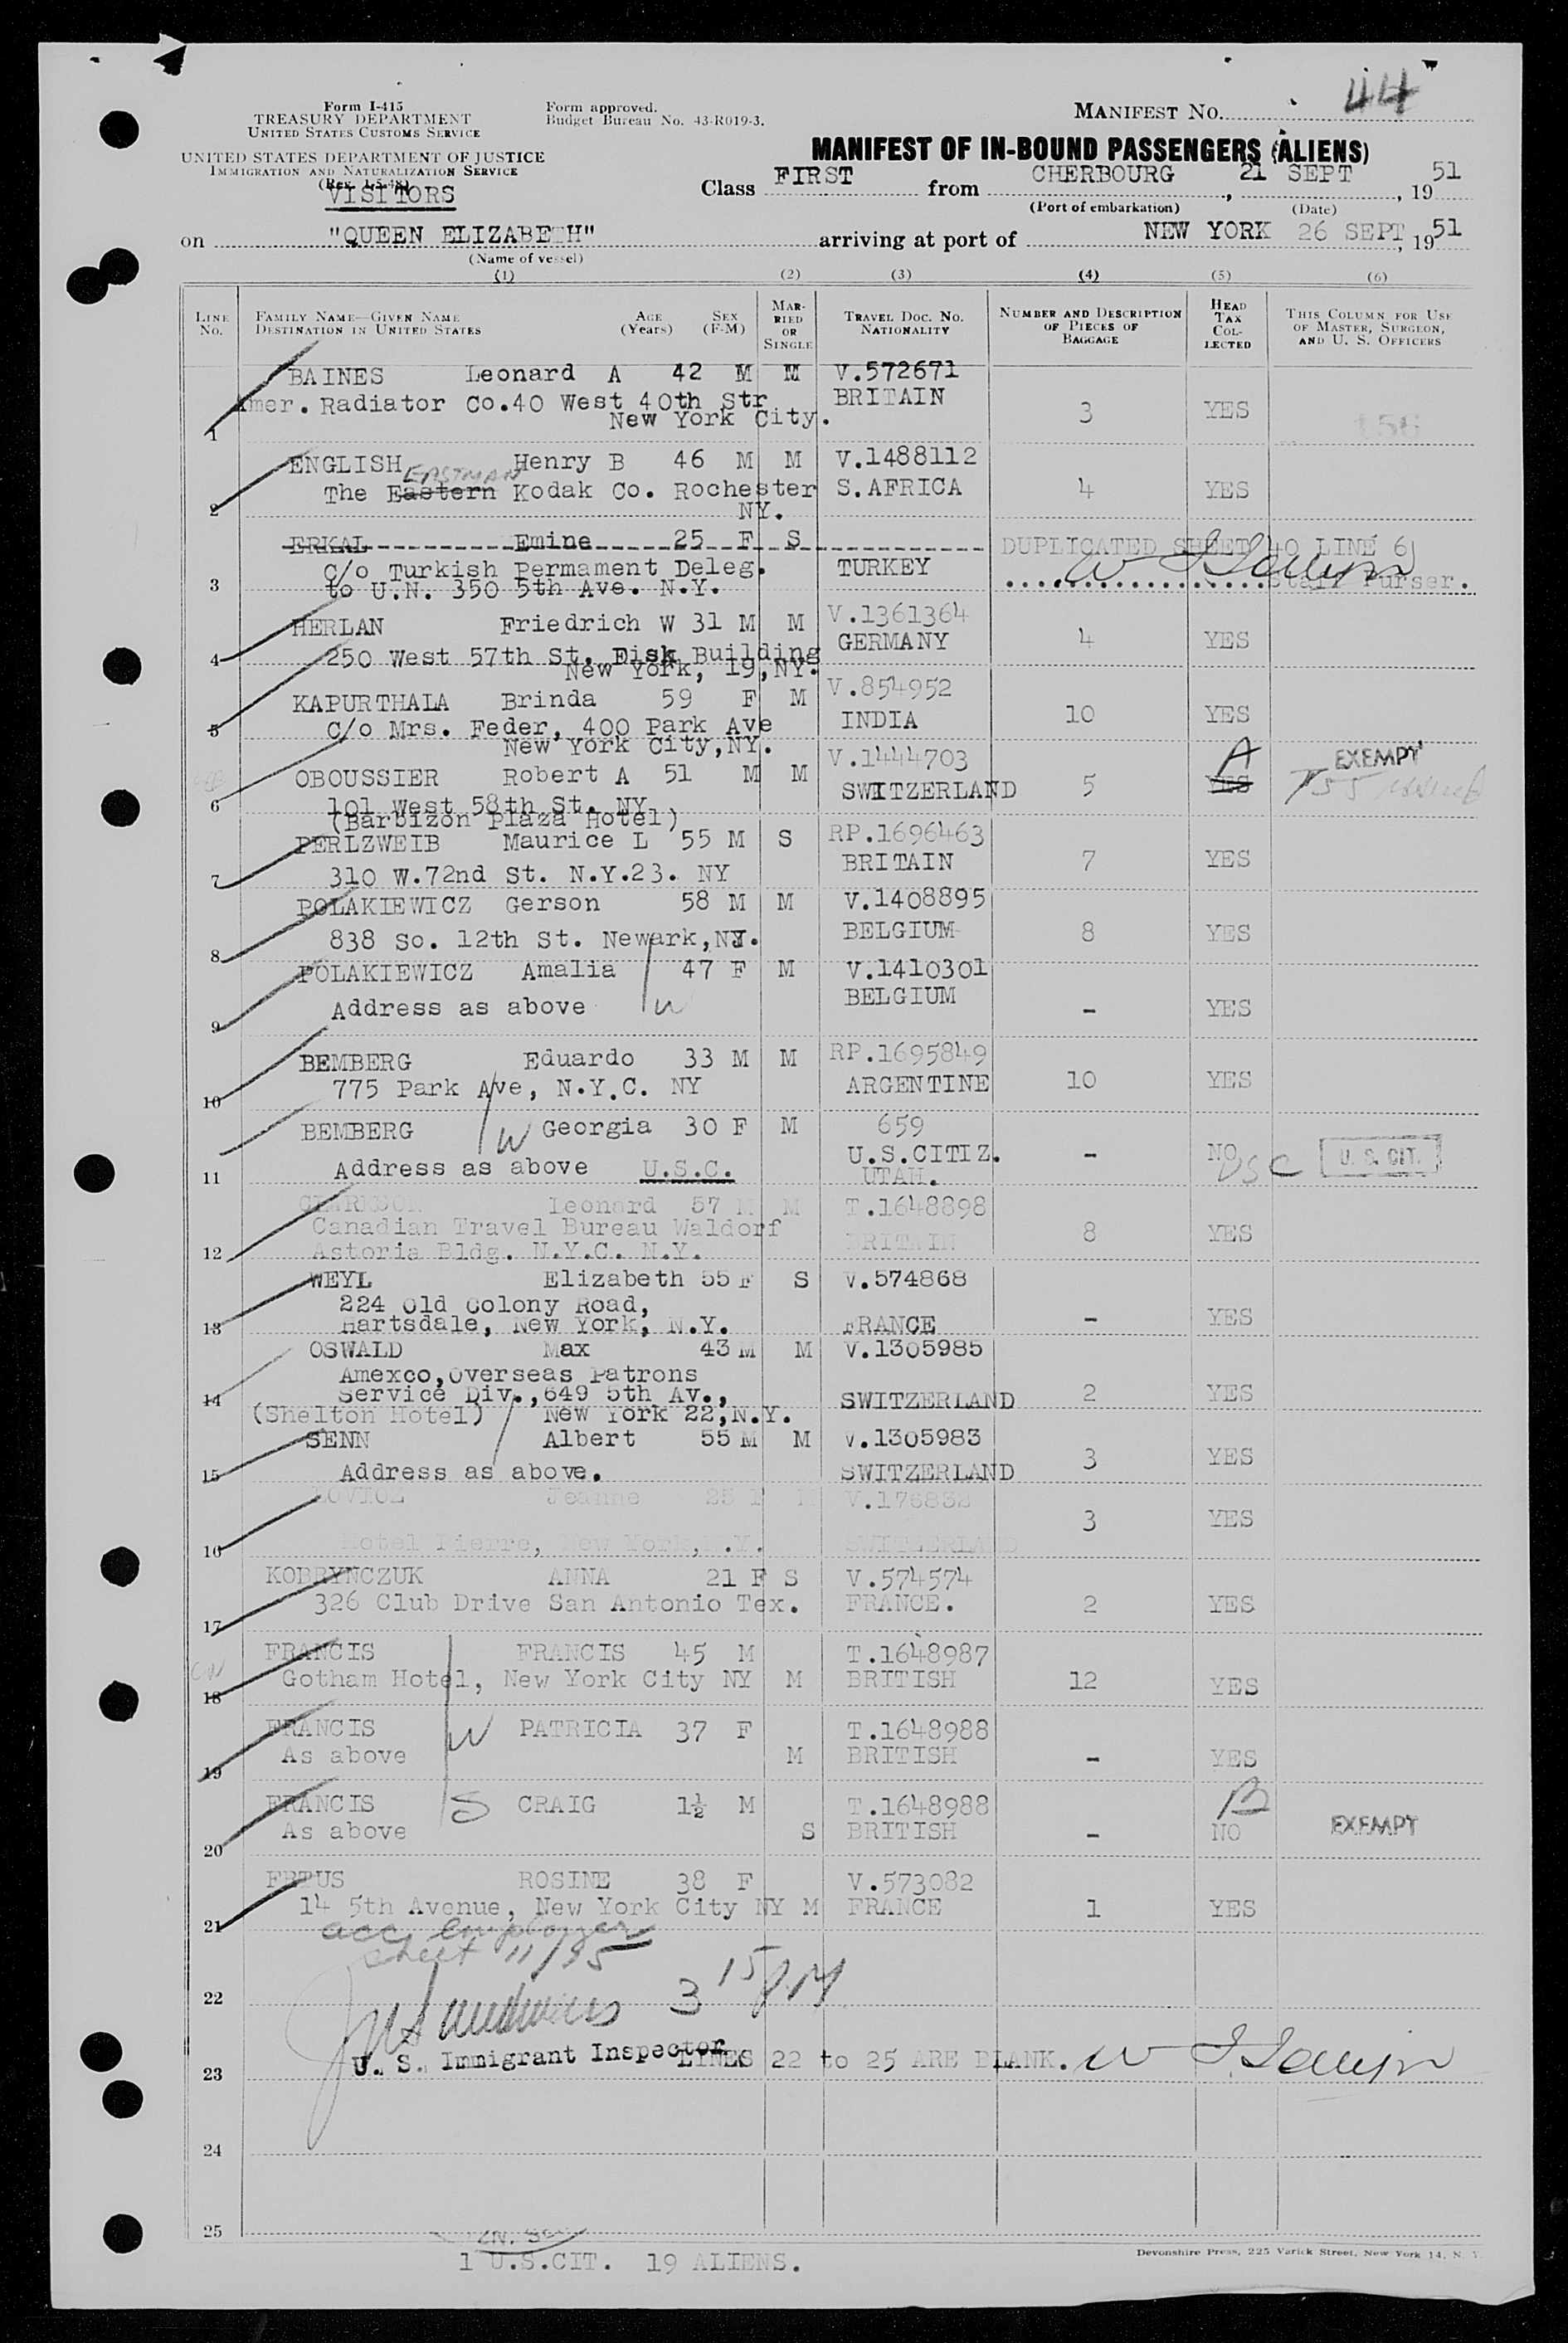 44
Form I-415
TREASURY DEPARTMENT
UNITED STATES CUSTOMS SERVICE
Form approved.
Budget Bureau No. 43-R019-3.
MANIFEST No.
UNITED STATES DEPARTMENT OF JUSTICE
IMMIGRATION AND NATURALIZATION SERVICE
VISITORS
MANIFEST OF IN-BOUND PASSENGERS (ALIENS)
Class FIRST from CHERBOURG, 21 SEPT, 1951
(Port of embarkation) (Date)
on "QUEEN ELIZABETH" arriving at port of NEW YORK 26 SEPT, 1951
(Name of vessel)
(1) (2) (3) (4) (5) (6)
LINE No. FAMILY NAME—GIVEN NAME DESTINATION IN UNITED STATES AGE (Years) SEX (F-M) MARRIED OR SINGLE TRAVEL DOC. NO. NATIONALITY NUMBER AND DESCRIPTION OF PIECES OF BAGGAGE HEAD TAX COLLECTED THIS COLUMN FOR USE OF MASTER, SURGEON, AND U. S. OFFICERS
BAINES Leonard A 42 M M V.572671
Amer. Radiator Co.40 West 40th Str BRITAIN
1 New York City. 3 YES
ENGLISH Henry B 46 M M V.1488112
EASTMAN
The Eastern Kodak Co. Rochester S.AFRICA 4 YES
2 NY.
ERKAL Emine 25 F S DUPLICATED SHEET 40 LINE 6
C/o Turkish Permament Deleg. TURKEY
3 to U.N. 350 5th Ave. N.Y. Staff Purser.
HERLAN Friedrich W 31 M M V.1361364
4 250 West 57th St. Disk Building GERMANY 4 YES
New York, 19,NY.
KAPURTHALA Brinda 59 F M V.854952
5 C/o Mrs. Feder, 400 Park Ave INDIA 10 YES
New York City,NY.
OBOUSSIER Robert A 51 M M V.1444703
A EXEMPT
6 101 West 58th St. NY SWITZERLAND 5 YES
(Barbizon Plaza Hotel)
PERLZWEIB Maurice L 55 M S RP.1696463
7 310 W.72nd St. N.Y.23. NY BRITAIN 7 YES
POLAKIEWICZ Gerson 58 M M V.1408895
8 838 So. 12th St. Newark,NJ. BELGIUM 8 YES
POLAKIEWICZ Amalia 47 F M V.1410301
9 Address as above W BELGIUM - YES
BEMBERG Eduardo 33 M M RP.1695849
10 775 Park Ave, N.Y.C. NY ARGENTINE 10 YES
BEMBERG W Georgia 30 F M 659
11 Address as above U.S.C. U.S.CITIZ. - NO USC U. S. CIT.
UTAH.
Leonard 57 M M T.1648898
Canadian Travel Bureau Waldorf BRITAIN 8 YES
12 Astoria Bldg. N.Y.C. N.Y.
WEYL Elizabeth 55 F S V.574868
224 Old Colony Road,
13 Hartsdale, New York, N.Y. FRANCE - YES
OSWALD Max 43 M M V.1305985
Amexco,Overseas Patrons
14 Service Div.,649 5th Av., SWITZERLAND 2 YES
(Shelton Hotel) New York 22,N.Y.
SENN Albert 55 M M V.1305983
15 Address as above. SWITZERLAND 3 YES
Jeanne 25 F M V.176832
16 Hotel Pierre, New York,N.Y. SWITZERLAND 3 YES
KOBRYNCZUK ANNA 21 F S V.574574
17 326 Club Drive San Antonio Tex. FRANCE. 2 YES
FRANCIS FRANCIS 45 M T.1648987
18 Gotham Hotel, New York City NY M BRITISH 12 YES
FRANCIS W PATRICIA 37 F T.1648988
19 As above M BRITISH - YES
FRANCIS S CRAIG 1½ M T.1648988 B
20 As above S BRITISH - NO EXEMPT
FETUS ROSINE 38 F V.573082
21 14 5th Avenue, New York City NY M FRANCE 1 YES
acc. employer
sheet 11/35
22 3 15 PM
23 U. S. Immigrant Inspector LINES 22 to 25 ARE BLANK.
24
25
1 U.S.CIT. 19 ALIENS.
Devonshire Press, 225 Varick Street, New York 14, N. Y.